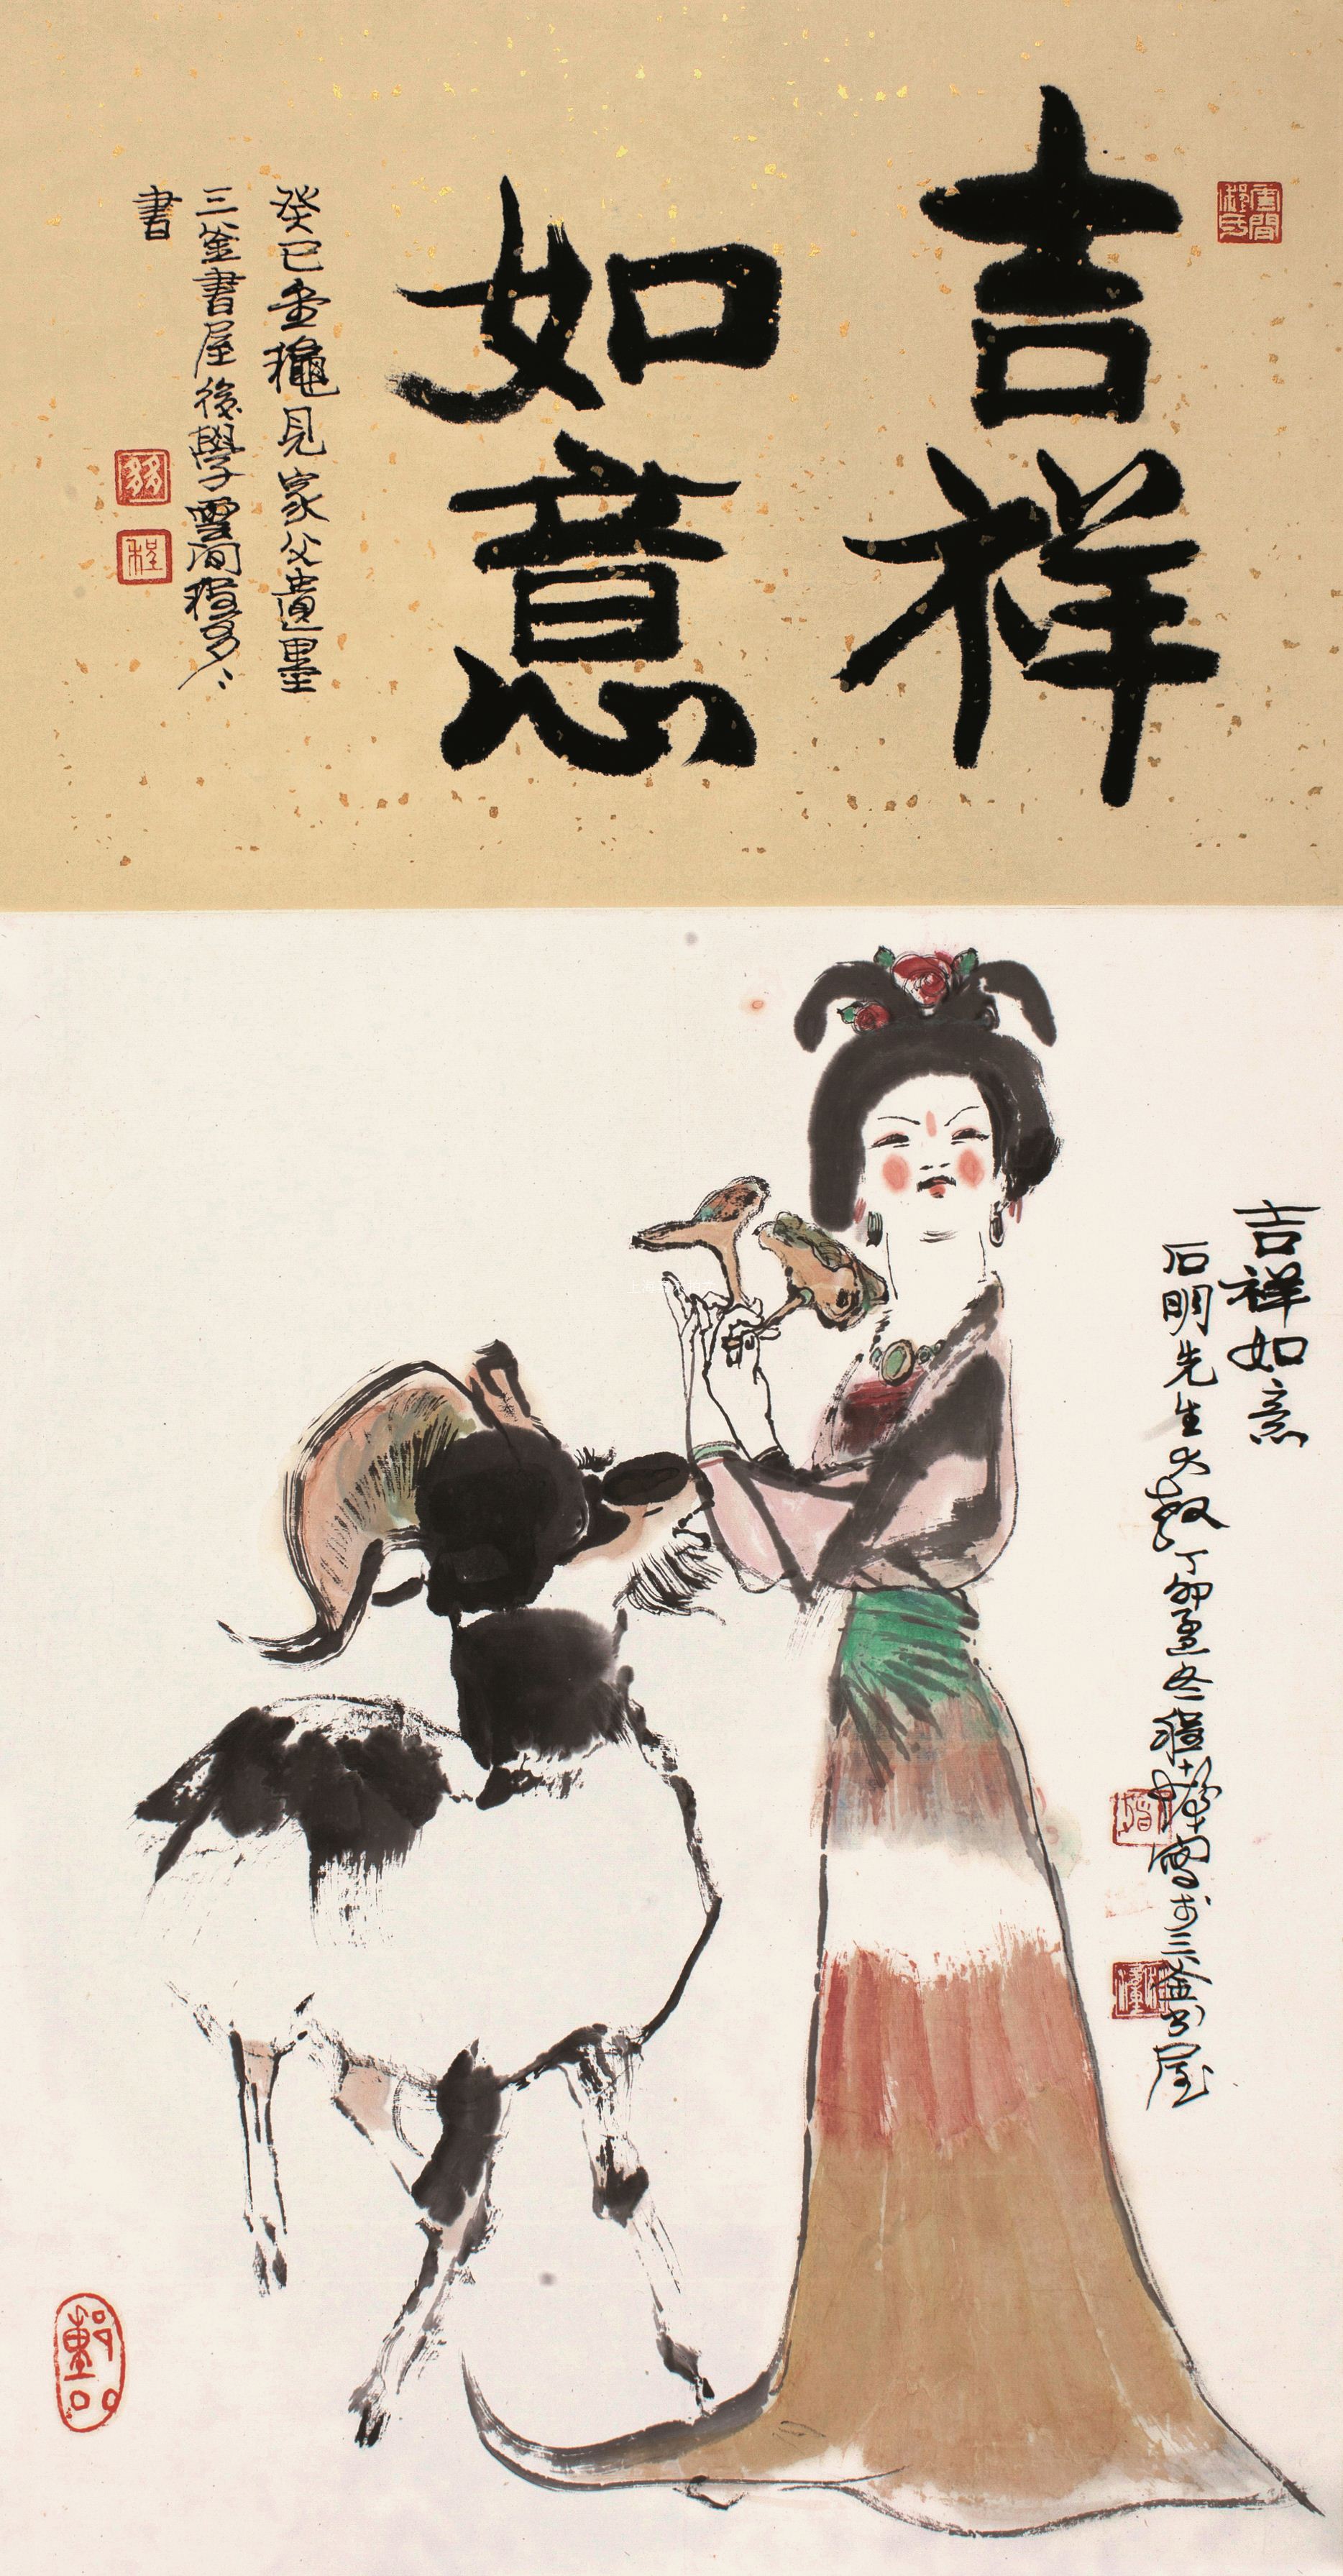 吉祥
如意
癸巳金龝見家父遺墨
三釜書屋後學雲間程多多
書
吉祥如意
石明先生大教丁卯孟冬程十髮寫於三釜書屋